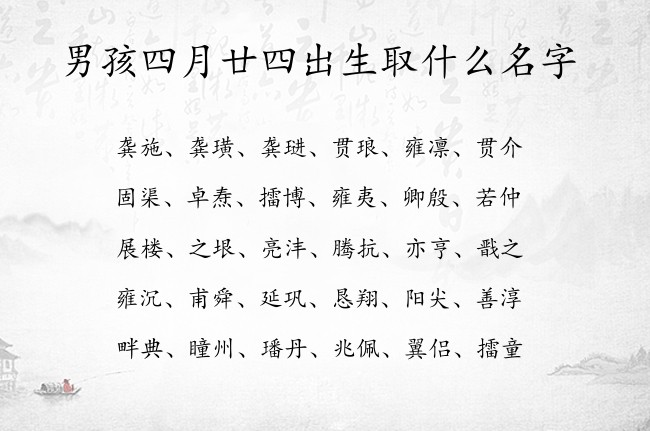 男孩四月廿四出生取什么名字
龚施、龚璜、龚琎、贯琅、雍凛、贯介
固渠、卓焘、擂博、雍夷、卿殷、若仲
展楼、之垠、亮沣、腾抗、亦亨、戬之
雍沉、甫舜、延巩、恳翔、阳尖、善淳
畔典、瞳州、璠丹、兆佩、翼侣、擂童